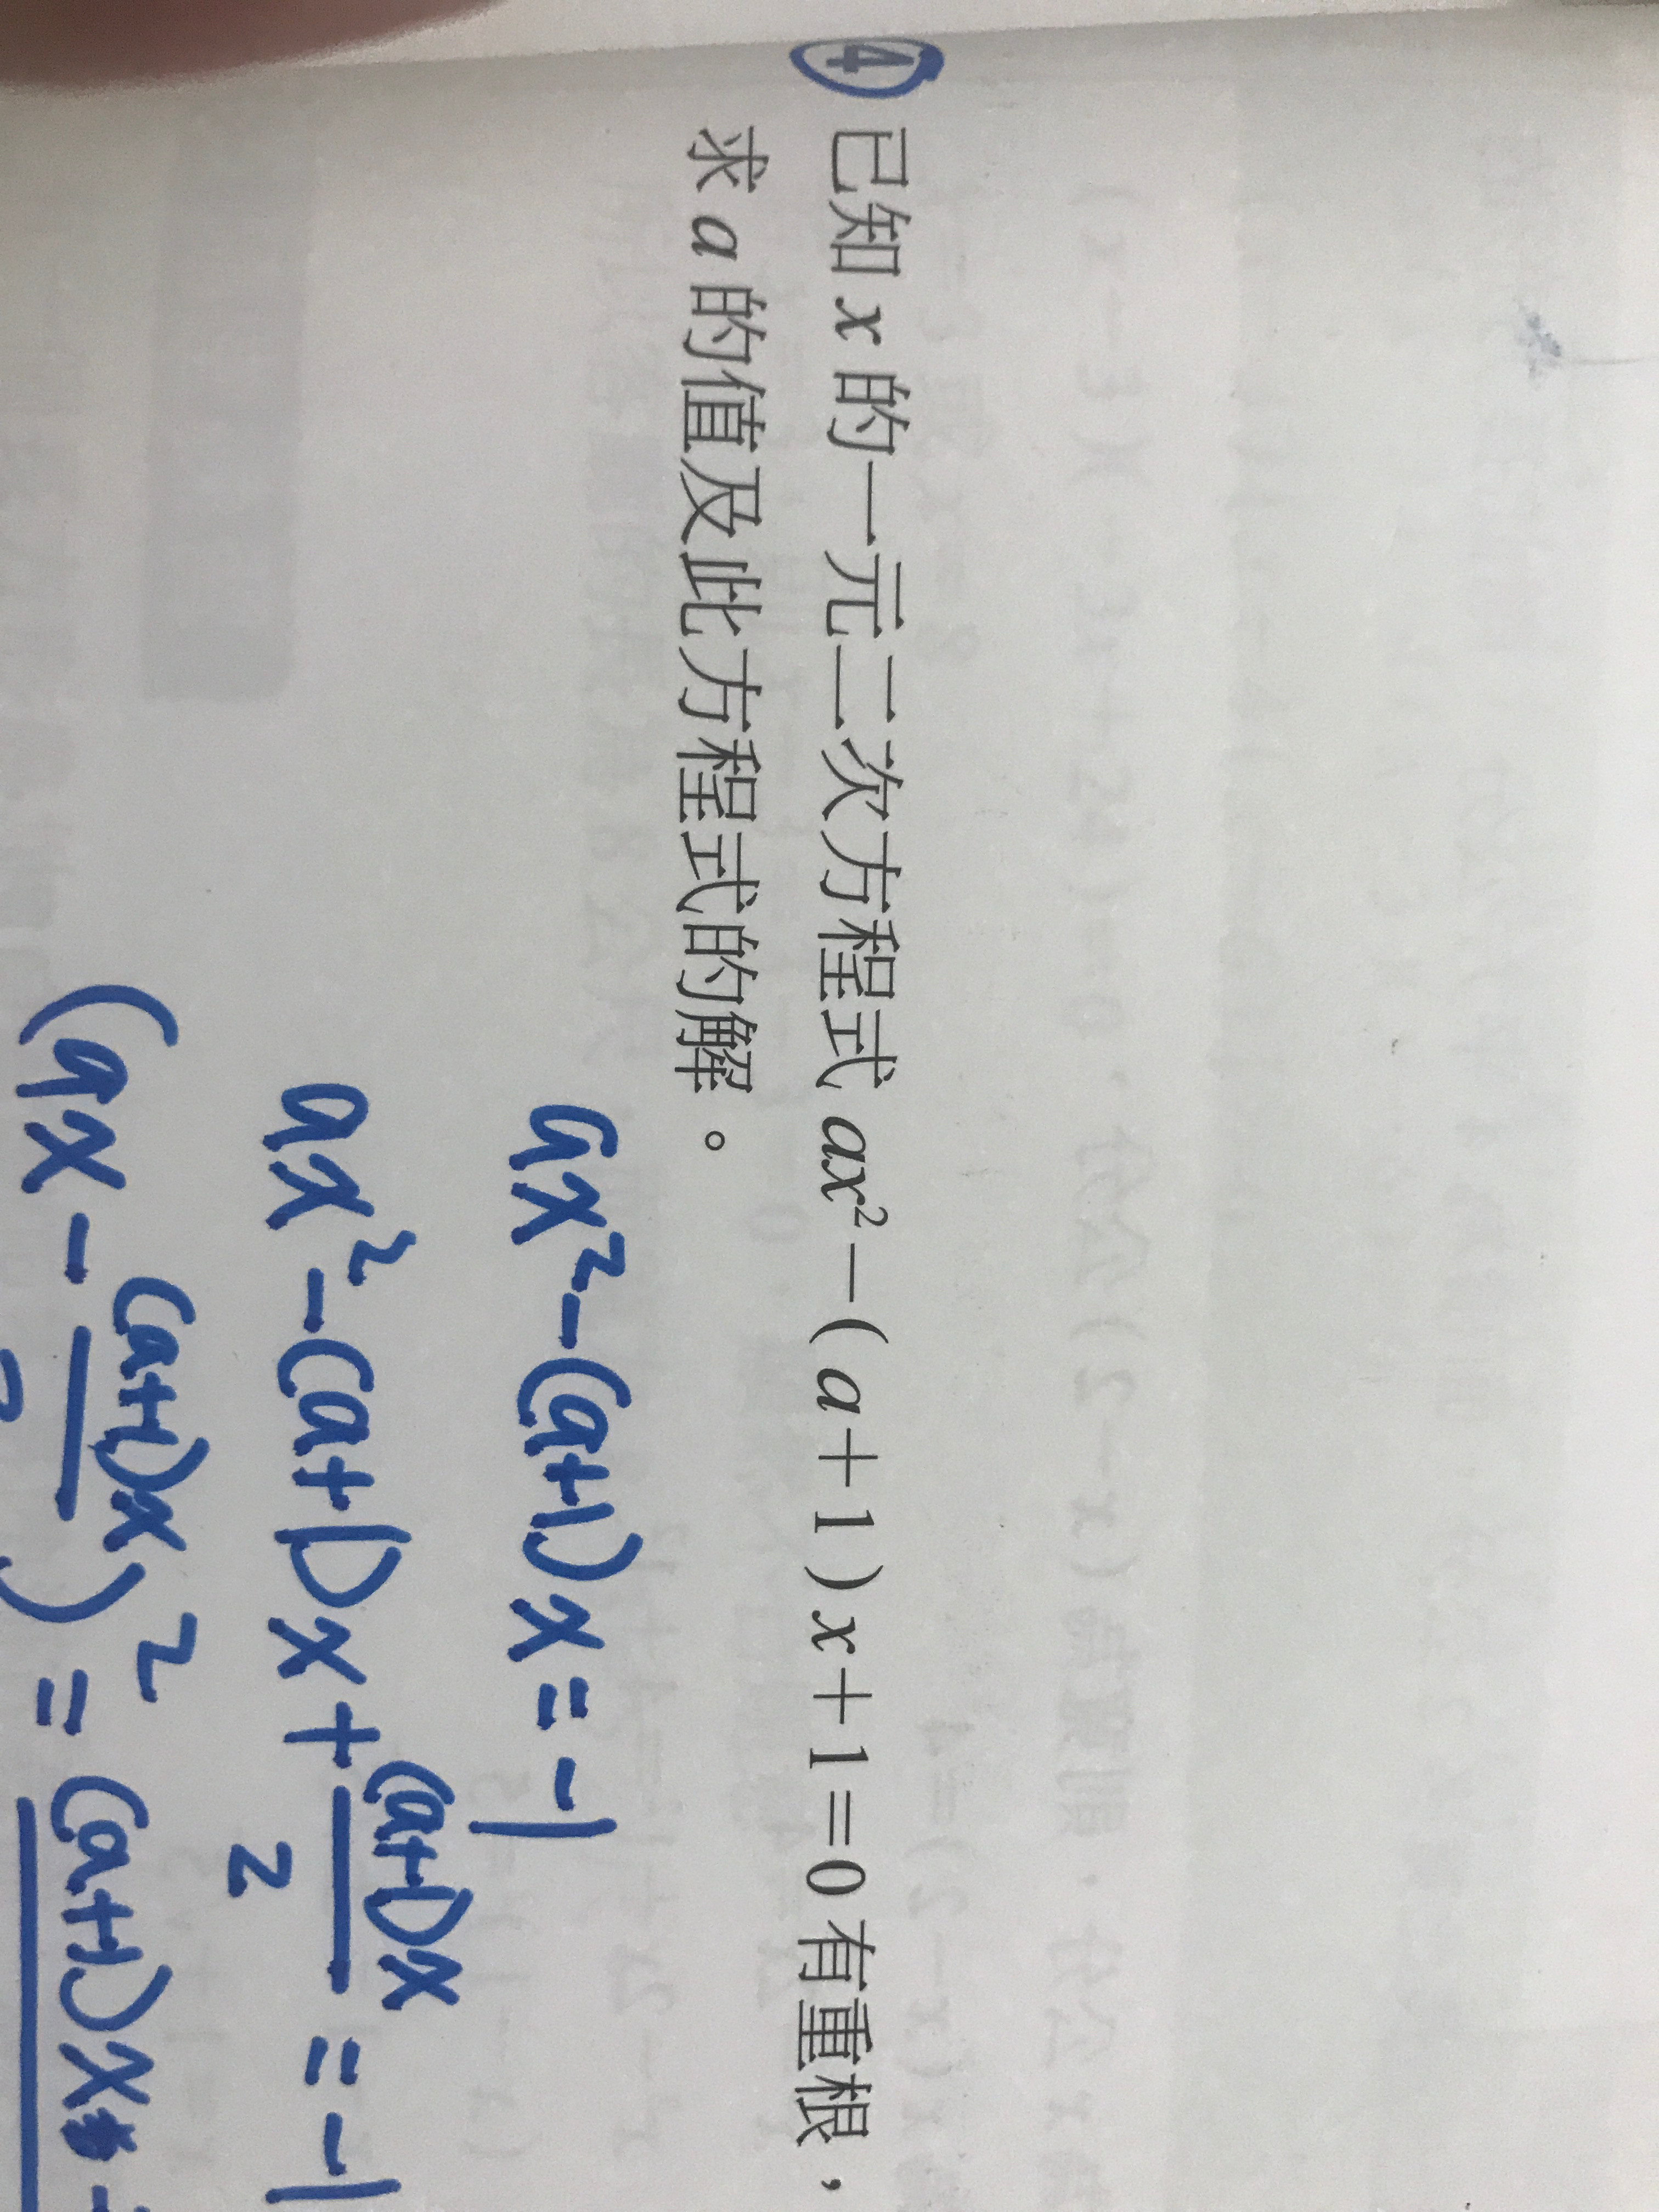 4 已知 x 的一元二次方程式 ax²－(a＋1)x＋1＝0 有重根，
求 a 的值及此方程式的解。
ax²-(a+1)x=-1
ax²-(a+1)x+(a+1)x/2=-1
(ax-(a+1)x/2)²=(a+1)x